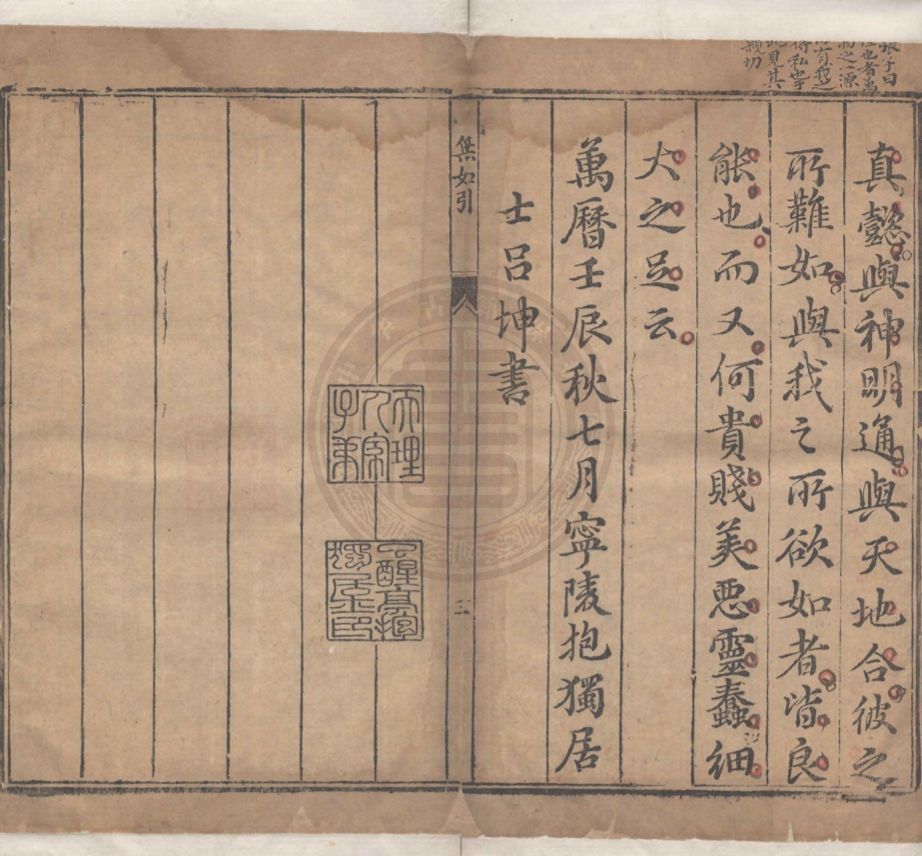 真懿與神明通與天地合彼之
所難如與我之所欲如者皆良
能也而又何貴賤美惡靈蠢細
大之足云
萬曆壬辰秋七月寧陵抱獨居
士呂坤書
無如引
三